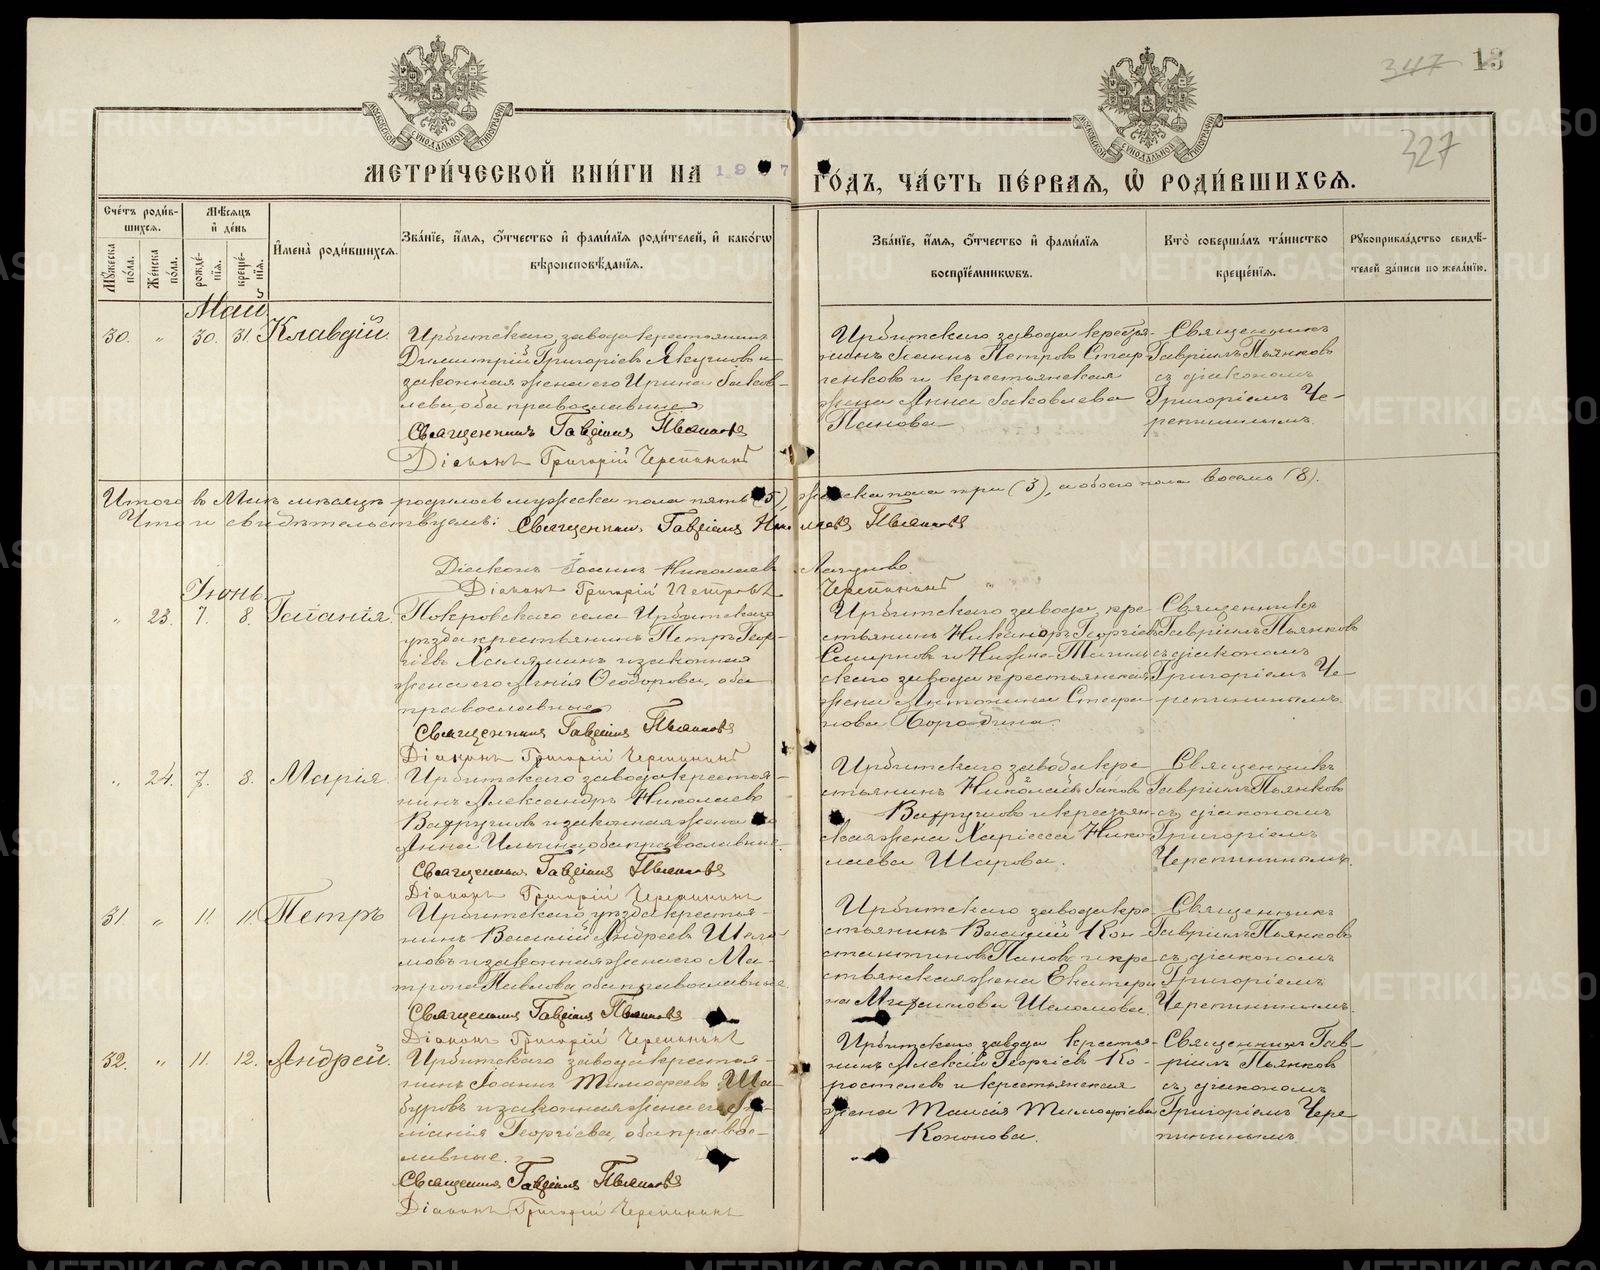 347 13
327
МОСКОВСКОЙ СѴНОДАЛЬНОЙ ТИПОГРАФІИ
МОСКОВСКОЙ СѴНОДАЛЬНОЙ ТИПОГРАФІИ
МЕТРИ́ЧЕСКОЙ КНИ́ГИ НА 19 7 ГО́ДЪ, ЧА́СТЬ ПЕ́РВАѦ, Ѿ РОДИ́ВШИХСѦ.
Счетъ роди́в-
шихсѧ.
Мꙋжеска по́ла.
Же́нска по́ла.
Мѣсѧцъ и де́нь
рожде́-
нїѧ.
креще́-
нїѧ.
И҆мена̀ роди́вшихсѧ.
Зва́нїе, и҆́мѧ, ѻ҆́тчество и҆ фами́лїѧ роди́телей, и҆ како́гѡ
вѣроисповѣ́данїѧ.
Зва́нїе, и҆́мѧ, ѻ҆́тчество и҆ фами́лїѧ
воспрїе́мникѡвъ.
Кто̀ соверша́лъ та́инство
креще́нїѧ.
Рꙋкоприкла́дство свидѣ́-
телей за́писи по жела́нїю.
Май
30. „ 30. 31. Клавдій.
Ирбитскаго завода крестьянинъ
Димитрій Григоріевъ Якушовъ и
законная жена его Ирина Іаков-
лева, оба православные
Священникъ Гавріилъ Пьянковъ
Діаконъ Григорій Черепанинъ
Ирбитскаго завода крестья-
нинъ Іоаннъ Петровъ Стар
ченковъ и крестьянская
жена Анна Іаковлева
Панова
Священникъ
Гавріилъ Пьянковъ
съ діакономъ
Григоріемъ Че-
репининымъ.
Итого въ Маѣ мѣсяцѣ родилось мужска пола пять (5), женска пола три (3), а обоего пола восемь (8).
Что и свидѣтельствуемъ: Священникъ Гавріилъ Николаевъ Пьянковъ
Діаконъ Іоаннъ Николаевъ Лагуновъ
Діаконъ Григорій Петровъ Черепанинъ „
Іюнь.
„ 23. 7. 8. Гоианія.
Покровскаго села Ирбитскаго
уѣзда крестьянинъ Петръ Геор-
гіевъ Халяминъ и законная
жена его Агнія Ѳеодорова, оба
православные
Священникъ Гавріилъ Пьянковъ
Діаконъ Григорій Черепанинъ
Ирбитскаго завода кре-
стьянинъ Никаноръ Георгіевъ
Смирновъ и Нижне-Тагиль-
скаго завода крестьянская
жена Антонина Стефа-
нова Бородина.
Священникъ
Гавріилъ Пьянковъ
съ діакономъ
Григоріемъ Че-
репининымъ
„ 24. 7. 8. Марія.
Ирбитскаго завода крестья-
нинъ Александръ Николаевъ
Вахрушовъ и законная жена
Анна Ильина, оба православные.
Священникъ Гавріилъ Пьянковъ
Діаконъ Григорій Черепанинъ
Ирбитскаго завода кре-
стьянинъ Николай Іаковъ
Вахрушовъ и крестьян-
ская жена Харіесса Нико-
лаева Шарова.
Священникъ
Гавріилъ Пьянковъ
съ діакономъ
Григоріемъ
Черепининымъ.
31 „ 11. 11. Петръ
Ирбитскаго уѣзда крестья-
нинъ Василій Андреевъ Шело-
мовъ и законная жена его Ма-
трона Павлова, оба православные.
Священникъ Гавріилъ Пьянковъ
Діаконъ Григорій Черепанинъ
Ирбитскаго завода кре-
стьянинъ Василій Кон-
стантиновъ Пановъ и кре-
стьянская жена Екатери
на Михаилова Шеломова.
Священникъ
Гавріилъ Пьянковъ
съ діакономъ
Григоріемъ
Черепининымъ.
32. „ 11. 12. Андрей.
Ирбитскаго завода крестья-
нинъ Іоаннъ Тимоѳеевъ Ша-
буровъ и законная жена его
Георгіева, оба право-
славные.
Священникъ Гавріилъ Пьянковъ
Діаконъ Григорій Черепанинъ
Ирбитскаго завода крестья-
нинъ Алексій Георгіевъ Ко-
ростелевъ и крестьянская
жена Таисія Тимоѳіева
Кононова.
Священникъ Гав-
ріилъ Пьянковъ
съ діакономъ
Григоріемъ Чере
пининымъ.
METRIKI.GASO-URAL.RU